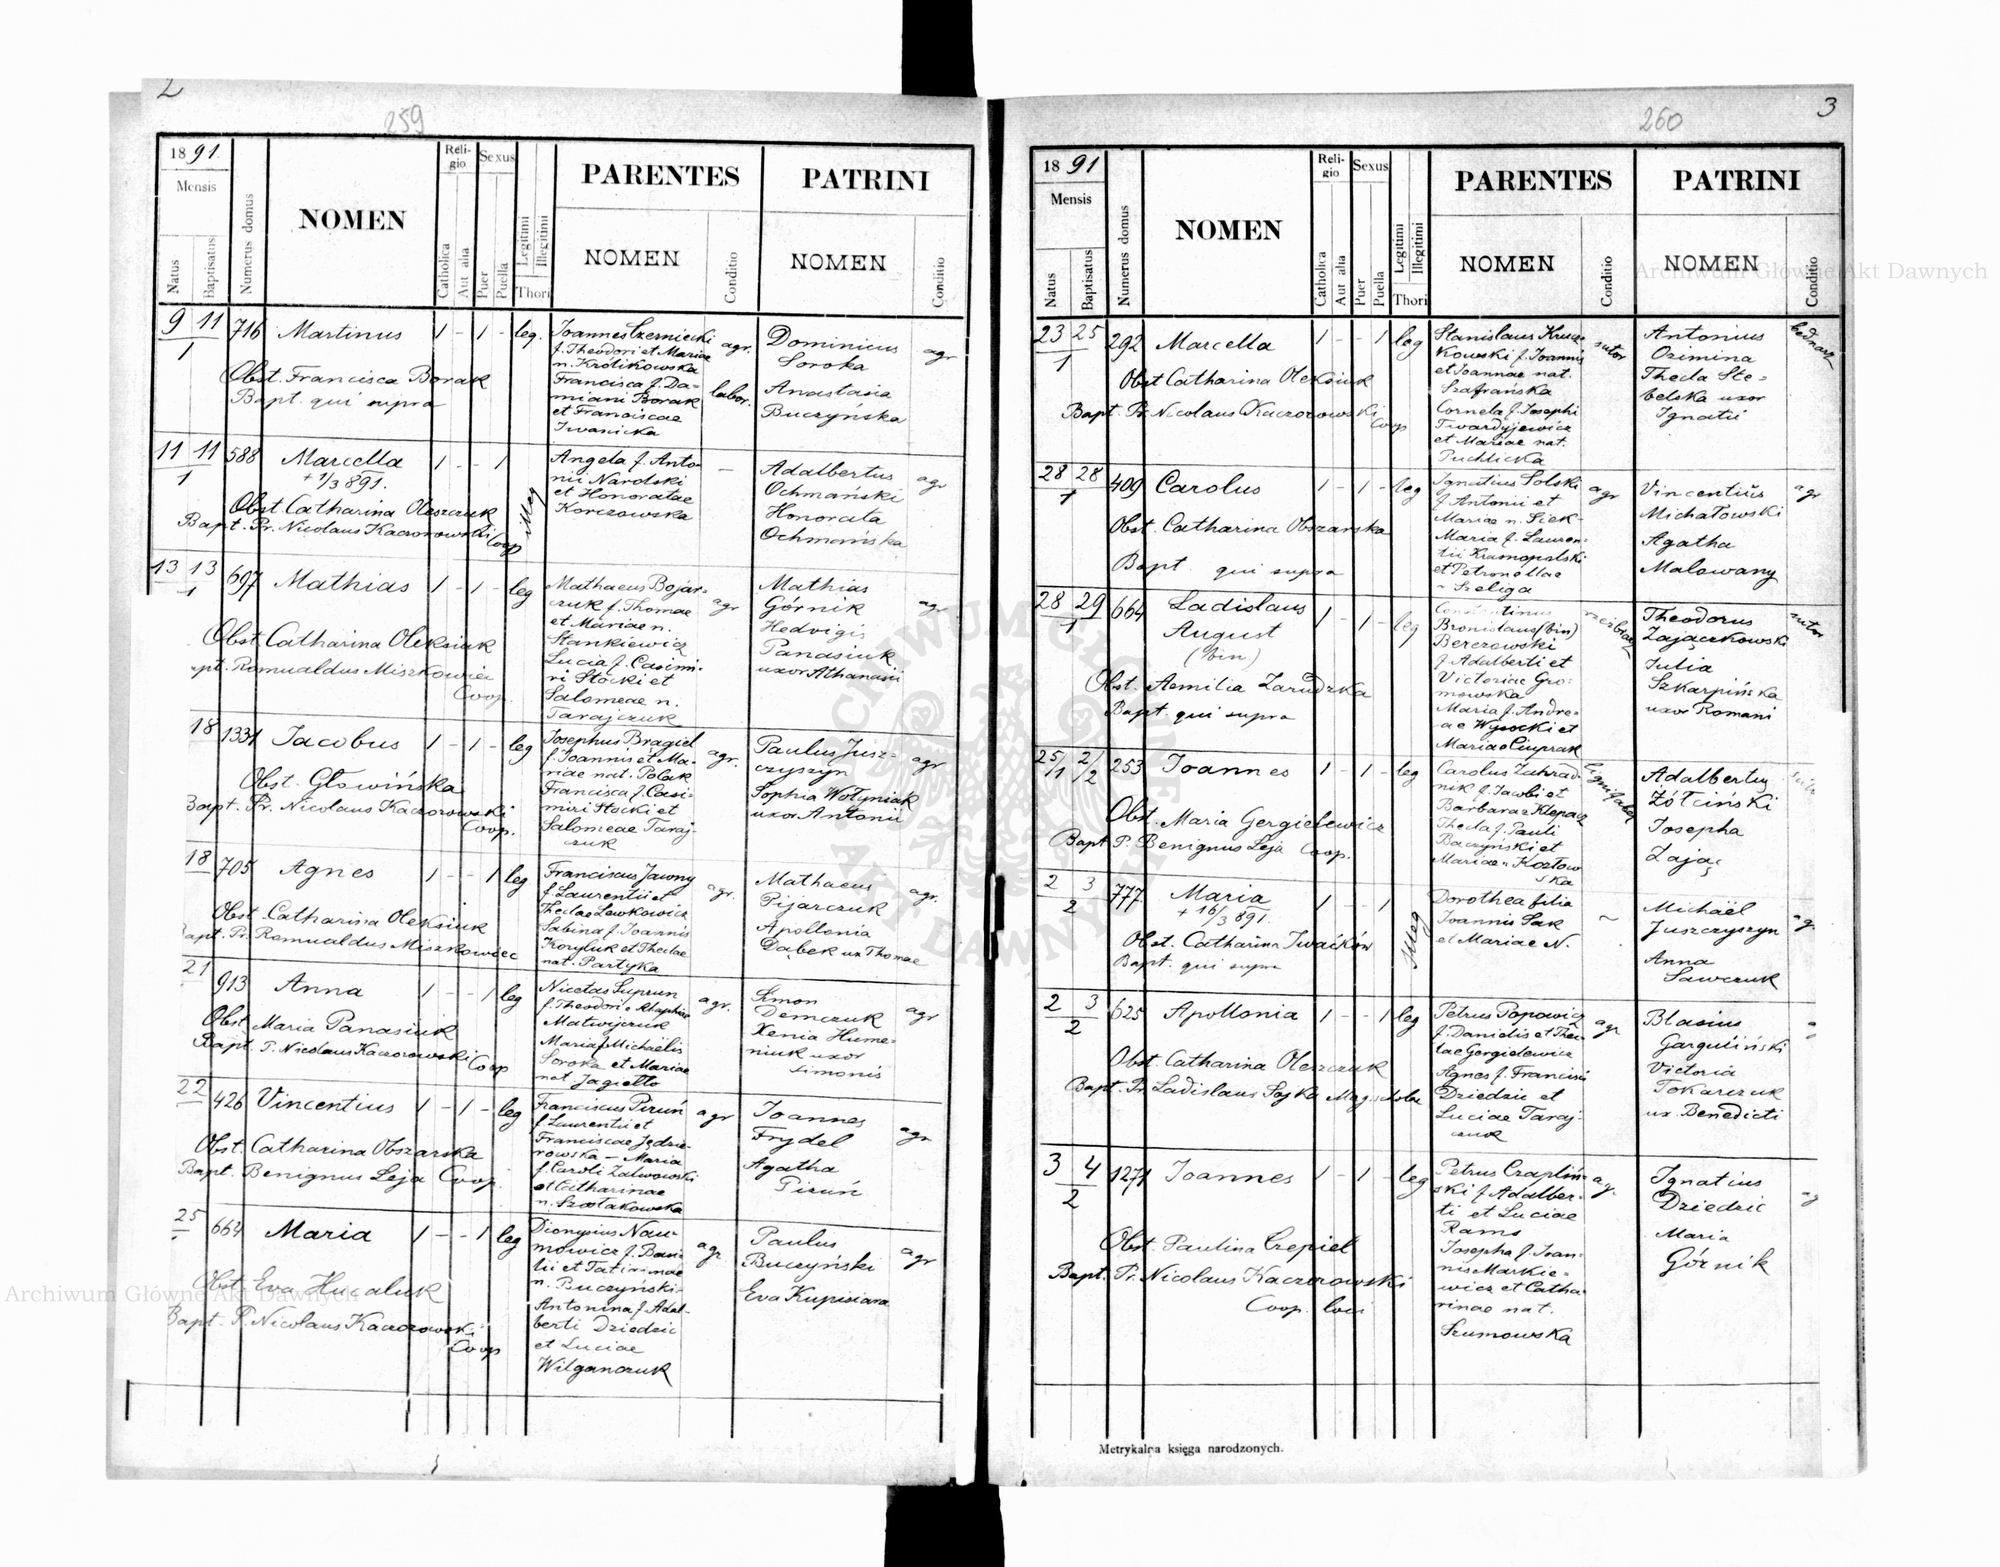 2
259
1891.
Mensis
Natus
Baptisatus
Numerus domus
NOMEN
Religio
Catholica
Aut alia
Sexus
Puer
Puella
Legitimi
Illegitimi
Thori
PARENTES
NOMEN
Conditio
PATRINI
NOMEN
Conditio
9 11
1
716 Martinus 1 - 1 - leg.
Obst. Francisca Borak
Bapt. qui supra
Joannes Czerniecki
f. Theodori et Mariae
n. Królikowska
Francisca f. Da-
miani Borak
et Franciscae
Iwanicka
agr.
labor.
Dominicus
Soroka
Anastasia
Buczyńska
agr
11 11
1
588 Marcella 1 - - 1 illeg
+ 1/3 891.
Obst. Catharina Oleszczuk
Bapt. Pr. Nicolaus Kaczorowski
Coop
Angela f. Anto-
nii Narolski
et Honoratae
Korczowska
-
Adalbertus
Ochmański
Honorata
Ochmańska
agr
13 13
1
697 Mathias 1 - 1 - leg
Obst. Catharina Oleksiuk
Romualdus Miszkowiec
Coop.
Mathaeus Bojar-
czuk f. Thomae
et Mariae n.
Stankiewicz
Lucia f. Casimi-
ri Stocki et
Salomeae n.
Tarajczuk
agr
Mathias
Górnik
Hedvigis
Panasiuk
uxor Athanasii
agr
18
1331 Jacobus 1 - 1 - leg
Obst. Głowińska
Bapt. Pr. Nicolaus Kaczorowski
Coop.
Josephus Bragiel
f. Joannis et Ma-
riae nat. Polak
Francisca f. Casi-
miri Stocki et
Salomeae Taraj-
czuk
agr.
Paulus Jusz-
czyszyn
Sophia Wołyniak
uxor Antonii
agr
18
705 Agnes 1 - - 1 leg
Obst. Catharina Oleksiuk
Bapt. Pr. Romualdus Miszkowiec
Franciscus Jawny
f. Laurentii et
Theclae Lewkowicz
Sabina f. Joannis
Koryluk et Theclae
nat. Partyka
agr.
Mathaeus
Pijarczuk
Apollonia
Dąbek ux Thomae
agr.
21
913 Anna 1 - - 1 leg
Obst. Maria Panasiuk
Bapt. P. Nicolaus Kaczorowski
Coop
Nicetas Suprun
f. Theodori
Matwijczuk
Maria f. Michaëlis
Soroka et Mariae
nat Jagiełło
agr.
Simon
Demczuk
Xenia Hume-
niuk uxor
Simonis
agr
22
426 Vincentius 1 - 1 - leg
Obst. Catharina Obszarska
Bapt. Benignus Leja Coop.
Franciscus Piruń
f. Laurentii et
Franciscae Jędrze-
rowska - Maria
f. Caroli Zalwowski
et Catharinae
n. Szołakowska
agr
Joannes
Frydel
Agatha
Piruń
agr
25
664 Maria 1 - - 1 leg
Obst. Eva Hucaluk
Bapt. P. Nicolaus Kaczorowski
Coop
Dionysius Nau-
mowicz f. Basi-
lii et Tatiannae
n. Buczyński-
Antonina f. Adal-
berti Dziedzic
et Luciae
Wilganczuk
agr
Paulus
Buczyński
Eva Kupisiana
agr
3
260
1891
Mensis
Natus
Baptisatus
Numerus domus
NOMEN
Religio
Catholica
Aut alia
Sexus
Puer
Puella
Legitimi
Illegitimi
Thori
PARENTES
NOMEN
Conditio
PATRINI
NOMEN
Conditio
23 25
1
292 Marcella 1 - - 1 leg
Obst Catharina Oleksiuk
Bapt. Pr. Nicolaus Kaczorowski
Coop
Stanislaus Krusz-
kowski f. Joannis
et Joannae nat.
Szafrańska
Cornela f. Josephi
Twardyjewicz
et Mariae nat.
Puchlicka
sutor
Antonius
Ozimina
Thecla Ste-
belska uxor
Ignatii
bednarz
28 28
1
409 Carolus 1 - 1 - leg
Obst. Catharina Obszarska
Bapt. qui supra
Ignatius Solski
f. Antonii et
Mariae n. Siek-
Maria f. Lauren-
tii Krasnopolski
et Petronellae
~ Szeliga
agr
Vincentius
Michałowski
Agatha
Malowany
agr
28 29
1
664 Ladislaus 1 - 1 - leg
August
(bin)
Obst. Aemilia Zarudzka
Bapt. qui supra
Constantinus
Bronislaus (bin)
Berezowski
f. Adalberti et
Victoriae Gro-
mowska
Maria f. Andre-
ae Wysocki et
Mariae Ciuprak
rzeźbiarz
Theodorus
Zajączkowski
Julia
Szkarpińska
uxor Romani
sutor
25/1 2/2
253 Joannes 1 - 1 - leg
Obst. Maria Gergielewicz
Bapt. P. Benignus Leja Coop.
Carolus Zahrad-
nik f. Jacobi et
Barbarae Klepacz
Thecla f. Pauli
Baczyński et
Mariae n Kozłow
ska
lignifaber
Adalbertus
Żółciński
Josepha
Zając
2 3
2
777 Maria 1 - - 1 illeg
+ 16/3 891.
Obst. Catharina Iwaików
Bapt. qui supra
Dorothea filia
Joannis Sak
et Mariae N.
~
Michaël
Juszczyszyn
Anna
Sawczuk
agr.
2 3
2
625 Apollonia 1 - - 1 leg
Obst. Catharina Oleszczuk
Bapt. Pr. Ladislaus Sojka Mag. scholae
Petrus Popowicz
f. Danielis et Thec-
lae Gergielewicz
Agnes f. Francisci
Dziedzic et
Luciae Taraj-
czuk
agr
Blasius
Garguliński
Victoria
Tokarczuk
ux. Benedicti
3 4
2
1271 Joannes 1 - 1 - leg
Obst. Paulina Czepiel
Bapt. Pr. Nicolaus Kaczorowski
Coop. loci
Petrus Czapliń-
ski f. Adalber-
ti et Luciae
Rams
Josepha f. Joan-
nis Markie-
wicz et Catha-
rinae nat.
Szumowska
agr.
Ignatius
Dziedzic
Maria
Górnik
ag
Metrykalna księga narodzonych.
Archiwum Główne Akt Dawnych
Archiwum Główne Akt Dawnych
ARCHIWUM GŁÓWNE
AKT DAWNYCH